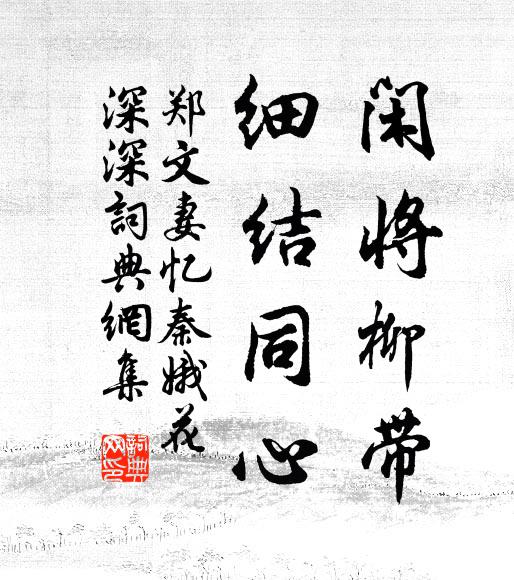 闲将柳带
细结同心
郑文妻忆秦娥花
深深詞典網集
詞典
网印